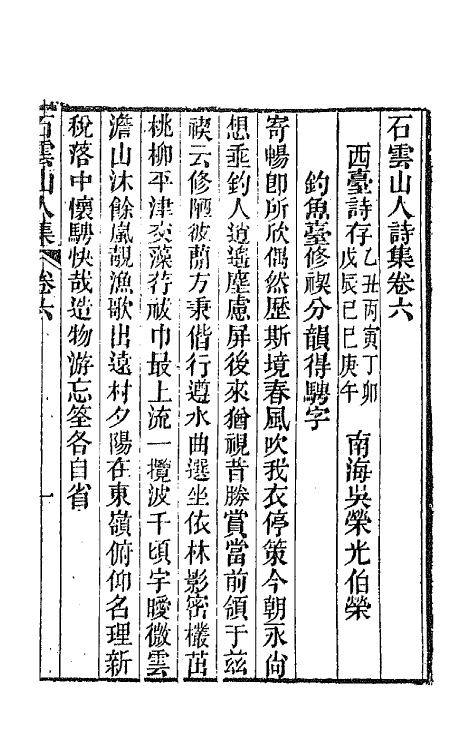 石雲山人詩集卷六
西臺詩存乙丑丙寅丁卯戊辰己巳庚午 南海吳榮光伯榮
釣魚臺修禊分韻得騁字
寄暢卽所欣偶然歷斯境春風吹我衣停策今朝永尙
想垂釣人逍遙塵慮屏後來猶視昔勝賞當前領于茲
禊云修陋彼蕑方秉偕行遵水曲選坐依林影密欑茁
桃柳平津交藻荇祓巾最上流一攬波千頃宇曖微雲
澹山沐餘嵐靚漁歌出遠村夕陽在東嶺俯仰名理新
稅落中懷騁快哉造物游忘筌各自省
石雲山人集 卷六 一